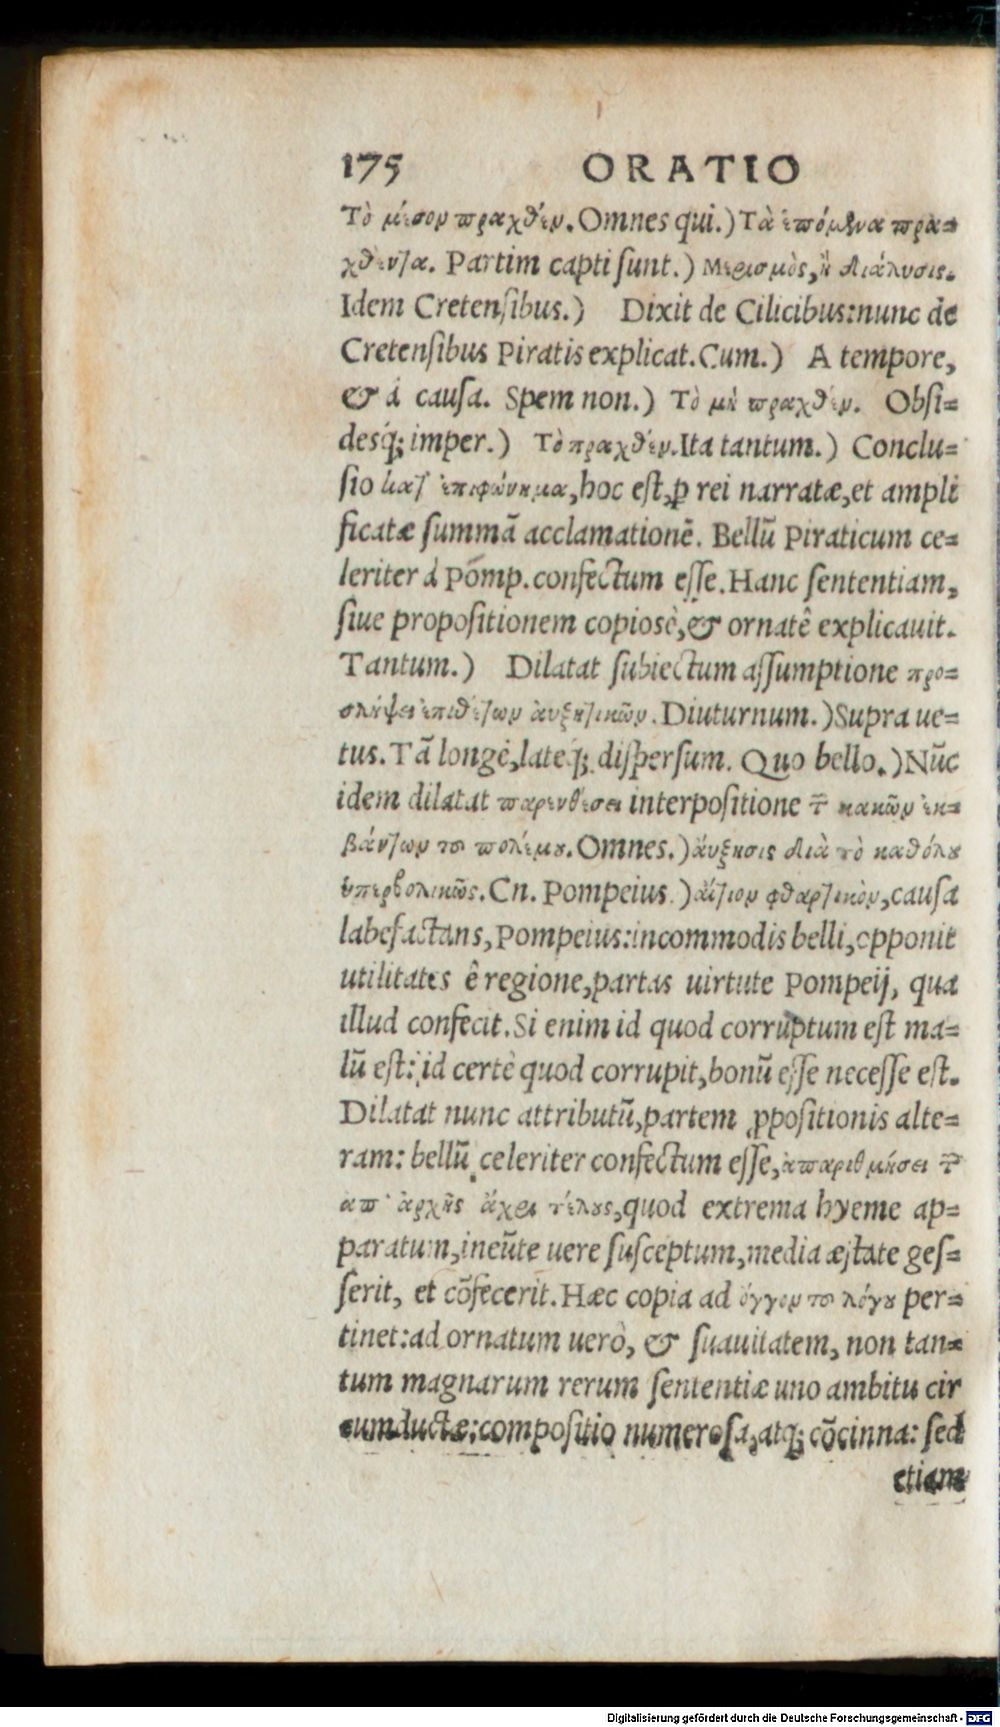 175 ORATIO
Τὸ μέσον πραχθέν. Omnes qui.) Τὰ ἑπόμενα πρα=
χθέντα. Partim capti sunt.) Μερισμὸς, ἢ διάλυσις.
Idem Cretensibus.) Dixit de Cilicibus: nunc de
Cretensibus Piratis explicat. Cum.) A tempore,
& á causa. Spem non.) Τὸ μὴ πραχθέν. Obsi=
desq́; imper.) Τὸ πραχθέν. Ita tantum.) Conclu=
sio κατ' ἐπιφώνημα, hoc est, ꝓ rei narratæ, et ampli
ficatæ summã acclamationẽ. Bellũ Piraticum ce=
leriter á Pomp. confectum esse. Hanc sententiam,
siue propositionem copiosè, & ornatê explicauit.
Tantum.) Dilatat subiectum assumptione προ=
σλήψει ἐπιθέτων ἀυξητικῶν. Diuturnum.) Supra ue=
tus. Tã longè, lateq́; dispersum. Quo bello.) Nũc
idem dilatat παρενθέσει interpositione τ̃ κακῶν ἐκ=
βάντων τοῦ πολέμου. Omnes.) ἄυξησις διὰ τὸ καθόλου
ὑπερβολικῶς. Cn. Pompeius.) αἴτιον φθαρτικὸν, causa
labefactans, Pompeius: incommodis belli, opponit
utilitates ê regione, partas uirtute Pompeij, qua
illud confecit. Si enim id quod corruptum est ma=
lũ est: id certè quod corrupit, bonũ esse necesse est.
Dilatat nunc attributũ, partem ꝓpositionis alte=
ram: bellũ celeriter confectum esse, ἀπαριθμήσει τ̃
ἀπ' ἀρχῆς ἄχρι τέλους, quod extrema hyeme ap=
paratum, ineũte uere susceptum, media æstate ges=
serit, et cõfecerit. Hæc copia ad ὄγκον τοῦ λόγου per=
tinet: ad ornatum uerò, & suauitatem, non tan=
tum magnarum rerum sententiæ uno ambitu cir
cumductæ; compositio numerosa, atq; cõcinna: sed
etiam
Digitalisierung gefördert durch die Deutsche Forschungsgemeinschaft - DFG